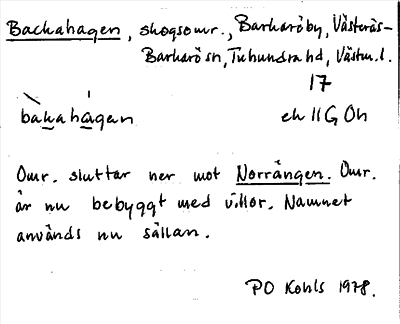 Backahagen, skogsomr., Barkaröby, Västerås-
Barkarö sn, Tuhundra hd, Västm. l.
17
bàkahágan ek 11G 0h
Omr. sluttar ner mot Norrängen. Omr.
är nu bebyggt med villor. Namnet
används nu sällan.
PO Kohls 1978.